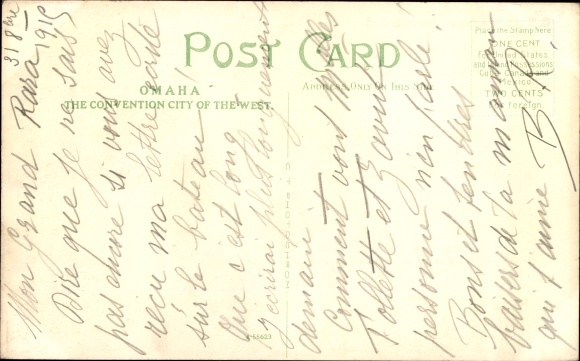 POST CARD
OMAHA
THE CONVENTION CITY OF THE WEST.
ADDRESS ONLY ON THIS SIDE
Place the Stamp here
ONE CENT
For United States
and Island Possessions
Cuba, Canada and
Mexico
TWO CENTS
For Foreign
31 8bre
1919
Mon Grand Rara
Dire que je ne sais
pas encore si vous avez
reçu ma lettre écrite
sur le bateau!
Que c'est long
J'écrirai plus longuement
demain
Comment vont Miles
Tollette et Zount
personne n'en parle!
Bons et tendres
baisers de ta maman
qui t'aime B